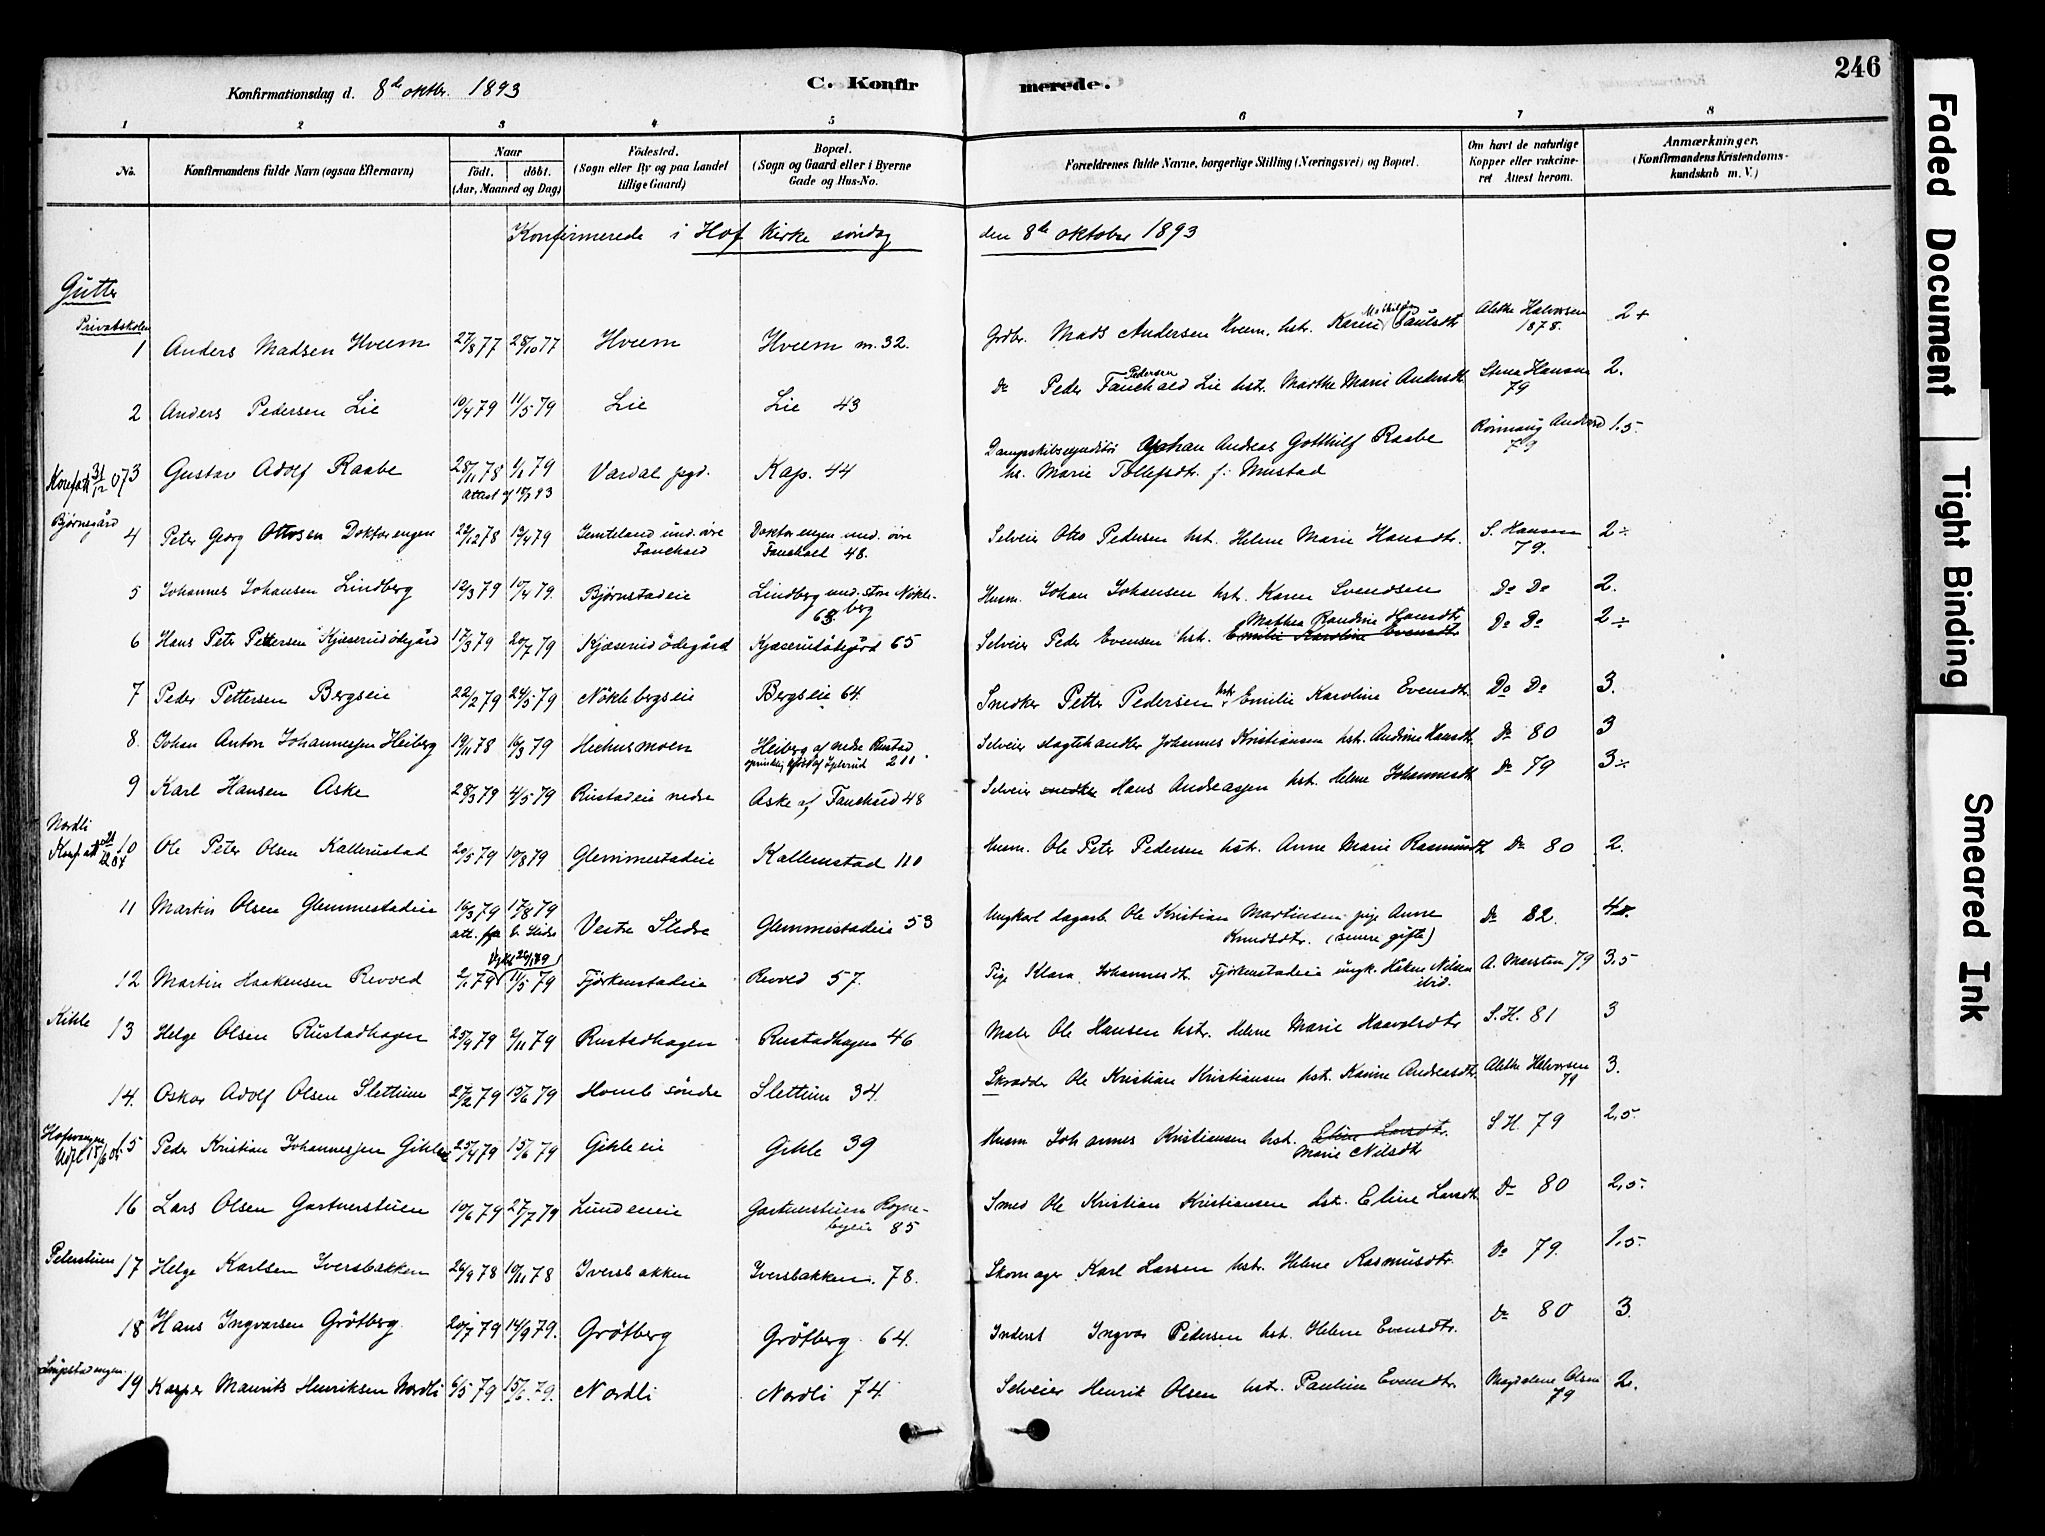 246
Konfirmationsdag d. 8de oktbr. 1893
C. Konfirmerede.
1 2 3 4 5 6 7 8
No. Konfirmandens fulde Navn (ogsaa Efternavn) Naar født. døbt. (Aar, Maaned og Dag) Fødested. (Sogn eller By og paa Landet tillige Gaard) Bopæl. (Sogn og Gaard eller i Byerne Gade og Hus-No. Forældrenes fulde Navne, borgerlige Stilling (Næringsvei) og Bopæl. Om havt de naturlige Kopper eller vakcineret Attest herom. Anmærkninger. (Konfirmandens Kristendomskundskab m. V.)
Konfirmerede i Hof Kirke søndag den 8de oktober 1893
Gutter
Privatskolen
1 Anders Madsen Hveem 27/8 77 28/10 77 Hveem Hveem m. 32. Grdbr. Mads Andersen Hveem, hst. Karen Mathilde Paulsdtr Alethe Halvorsen 1878. 2+
2 Anders Pedersen Lie 10/4 79 11/5 79 Lie Lie 43 Do Peder Pedersen Fauchald Lie hst. Marthe Marie Andersdtr. Stena Hansen 79 2.
Konf. att 31/12 07 3 Gustav Adolf Raabe 28/11 78 1/1 79 attest af 18/9 93 Vardal pgd. Kap. 44 Dampskibsexpeditør Johan Andreas Gotthilf Raabe hs. Marie Tollefsdtr. f: Mustad 79 1.5.
Bjørnsgård 4 Peter Georg Ottosen Doktorengen 22/12 78 19/4 79 Jemteland und. øvre Fauchald Doktorengen und. øvre Fauchald 48. Selveier Otto Pedersen hst. Helene Marie Hansdtr. S. Hansen 79. 2÷
5 Johannes Johansen Lindberg 12/3 79 10/4 79. Bjørnstadeie Lindberg und. store Nøkleberg 63. Husm. Johan Johansen hst. Karen Svendsen Do Do 2.
6 Hans Peter Pettersen Kjæserudødegård 17/3 79 20/7 79 Kjæserudødegård Kjæserudødegård 65 Selveier Peder Evensen hst. Emilie Karoline Evensdtr Mathea Randine Hansdtr Do Do 2÷
7 Peder Pettersen Bergseie 22/2 79 24/5 79 Nøklebergseie Bergseie 64. Snedker Petter Pedersen hst. Emilie Karoline Evensdtr. Do Do 3.
8. Johan Anton Johannessen Heiberg 19/11 78 16/3 79 Hiehusmoen Heiberg af nedre Rustad 211. Selveier slagtehandler Johannes Kristiansen hst. Andrine Hansdtr Do 80 3
9 Karl Hansen Aske 28/3 79 4/5 79 Rustadeie nedre Aske af Fauchald 48 Selveier snedker Hans Andreassen hst. Helene Johannesdtr Do 79 3÷
Nordli Konf att 21/12 04 10 Ole Peter Olsen Kallerustad 20/5 79 10/8 79 Glemmestadeie Kallerustad 110 Husm. Ole Peter Pedersen hst. Anne Marie Rasmusdtr Do 80 2.
11 Martin Olsen Glemmestadeie 16/3 79 17/8 79 att. fra V. Slidre Vestre Slidre Glemmestadeie 53 Ungkarl dagarb. Ole Kristian Martinsen pige Anne Knudsdtr. (senere gifte) Do 82. 4
12 Martin Haakensen Revved 2/1 79 11/5 79 Tjørkenstadeie Revved 57. Pige Klara Johannesdtr. Tjørkenstadeie ungk. Haken Nilsen ibid. A. Marsten 79 3.5
Kihle 13 Helge Olsen Rustadhagen 25/9 79 2/11 79 Rustadhagen Rustadhagen 46 Maler Ole Hansen hst. Helene Marie Haavolsdtr S. H. 81 3
14. Oskar Adolf Olsen Slettum 27/2 79 19/6 79 Homb søndre Slettum 34. Skrædder Ole Kristian Kristiansen hst. Karine Andreasdtr. Alethe Halvorsen 79 3.
15 Peder Kristian Johannessen Gihleeie 25/4 79 15/6 79 Gihleeie Gihle 39 Husm Johannes Kristiansen hst. Eline Larsdtr. Marie Nilsdtr S H. 79 2.5
16 Lars Olsen Gartnerstuen 10/6 79 27/7 79 Lundeneie Gartnerstuen Rognebyeie 85 Smed Ole Kristian Kristiansen hst. Eline Larsdtr. Do 80 2.5.
Peterstuen 17 Helge Karlsen Iversbakken 26/9 78 10/11 78 Iversbakken Iversbakken. 78. Skomager Karl Larsen hst. Helene Rasmusdtr. Do 79. 1.5.
18 Hans Ingvarsen Grøtberg 20/7 79 14/9 79. Grøtberg Grøtberg 64. Inderst Ingvar Pedersen hst. Helene Evensdtr. Do 80 3.
19 Kasper Maurits Henriksen Nordli 6/5 79 15/6 79. Nordli Nordli 74 Selveier Henrik Olsen hst. Pauline Evensdtr. Magdalene Olsen 79 2.
Faded Document
Tight Binding
Smeared Ink